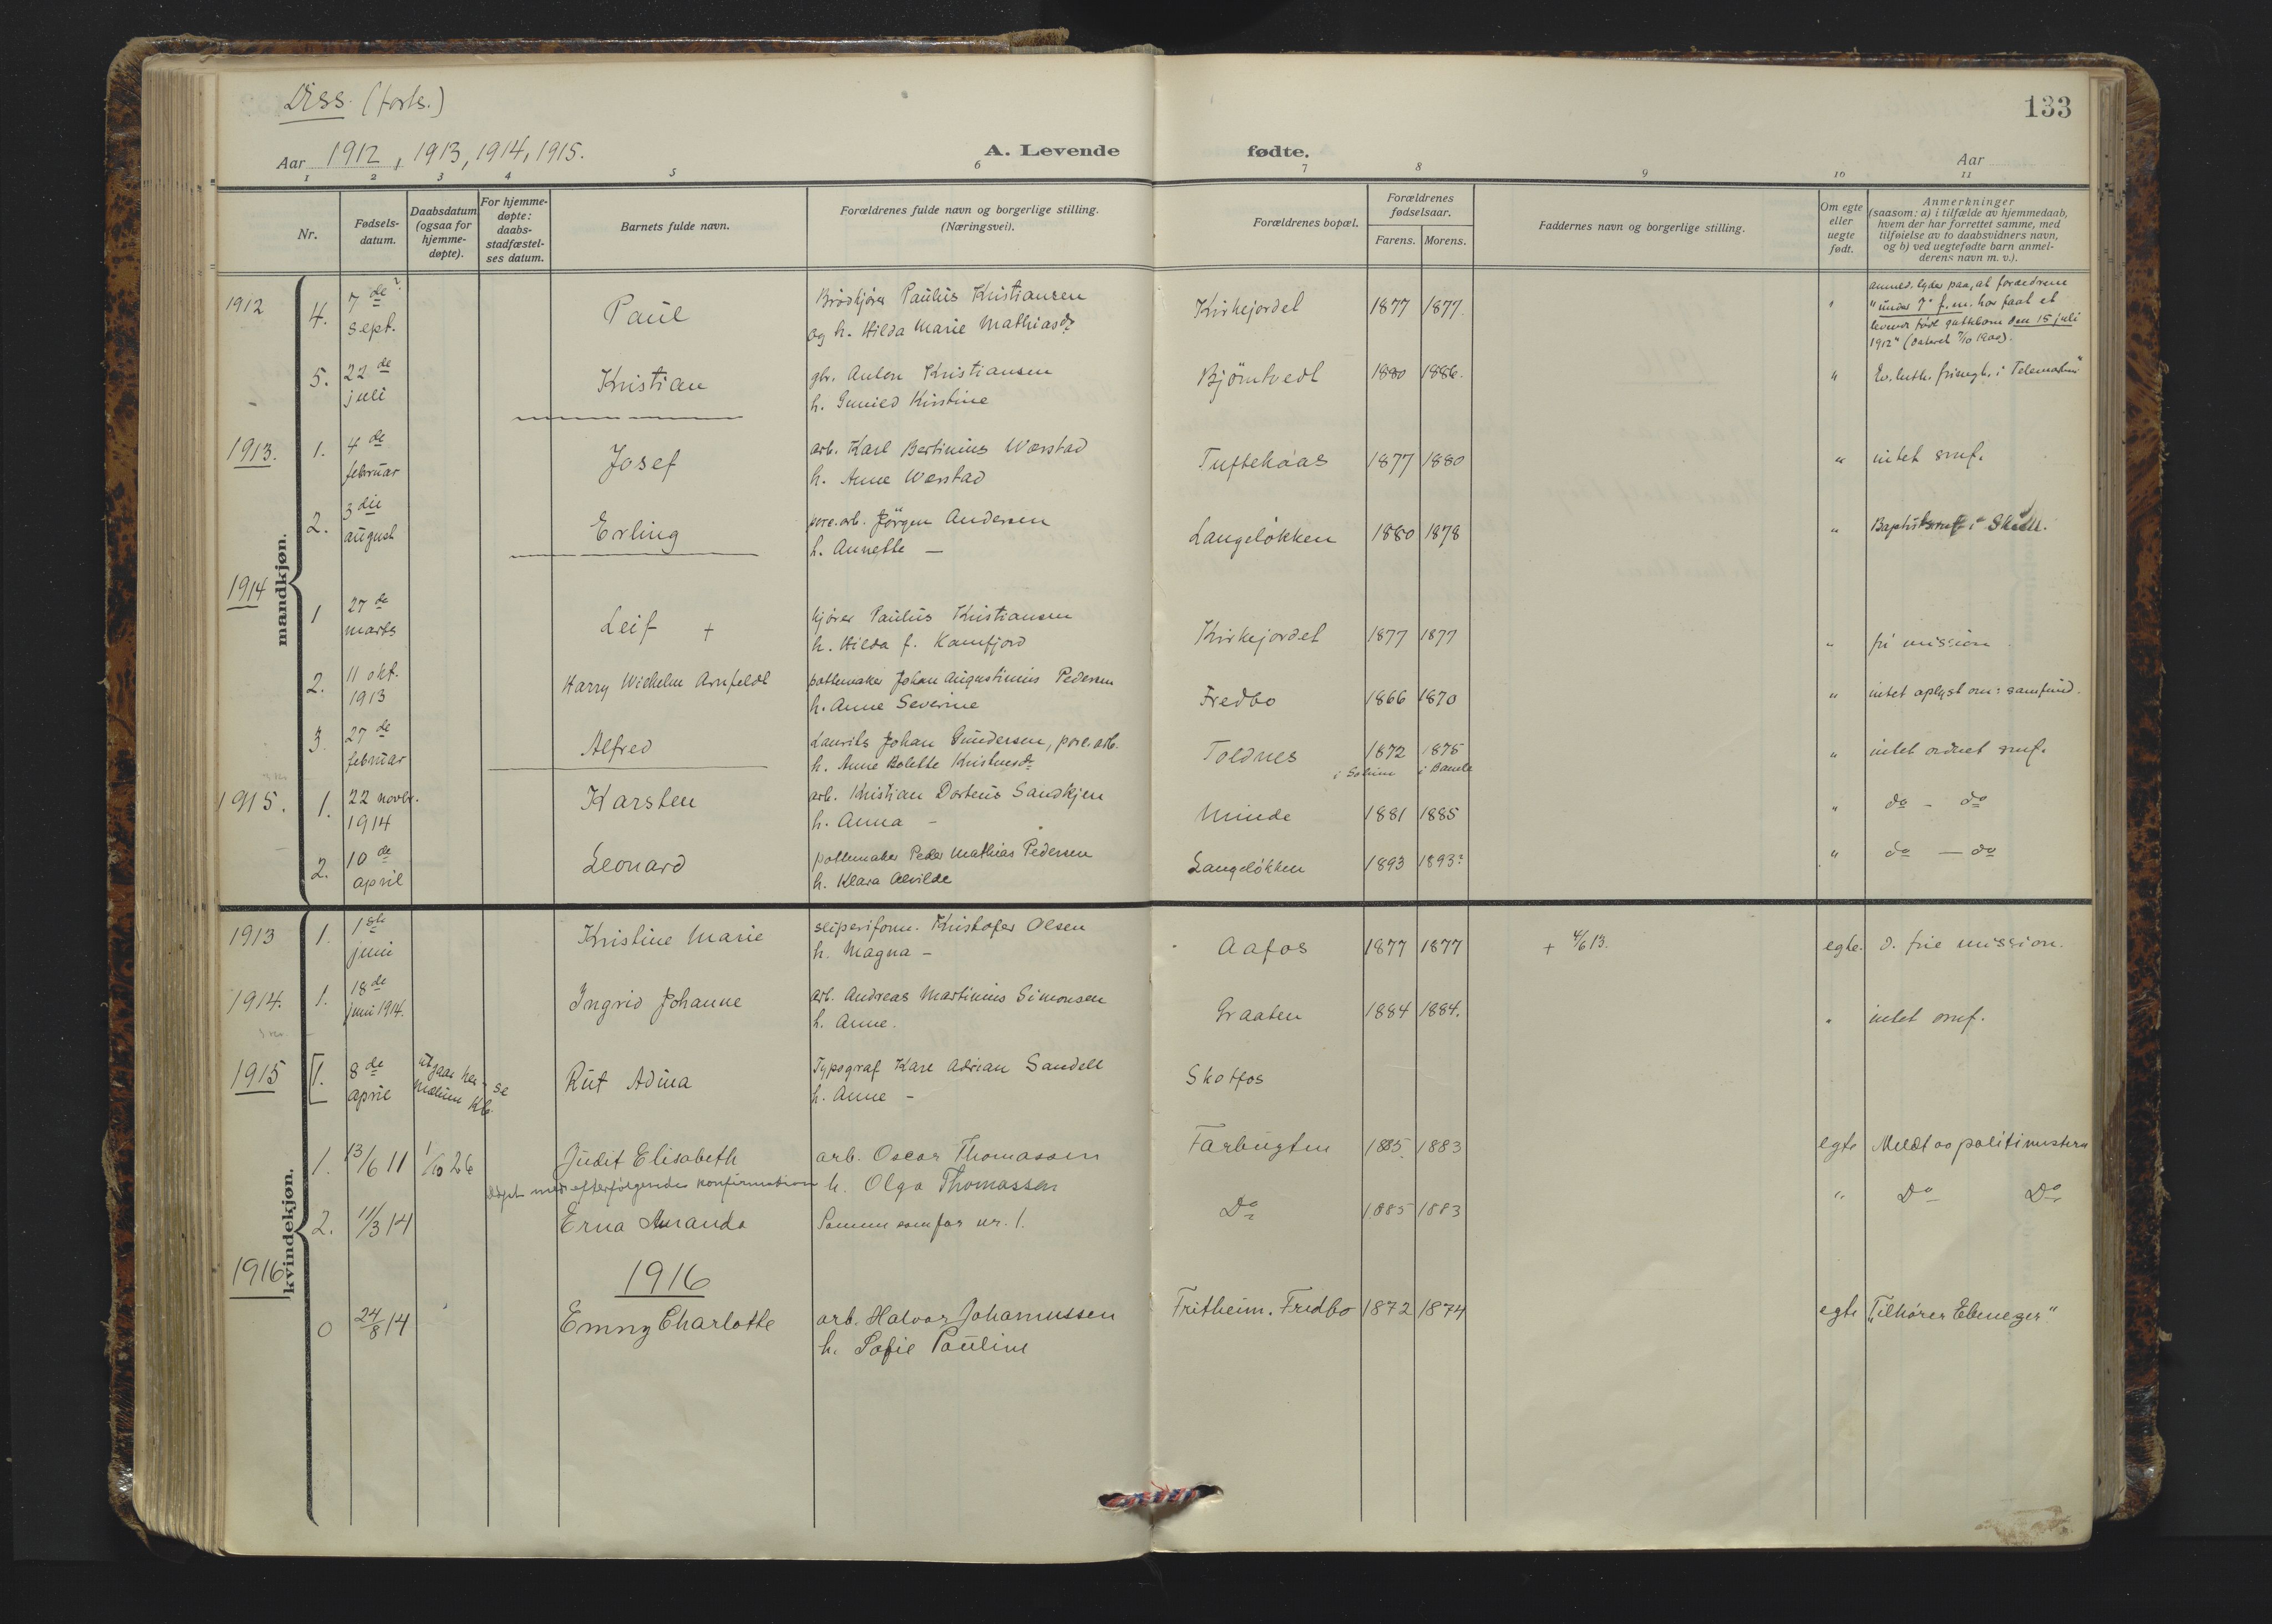 Diss. (forts.)
133
Aar 1912, 1913, 1914, 1915.
A. Levende fødte.
Aar
1 2 3 4 5 6 7 8 9 10 11
Nr.
Fødsels-
datum.
Daabsdatum
(ogsaa for
hjemme-
døpte).
For hjemme-
døpte:
daabs-
stadfæstel-
ses datum.
Barnets fulde navn.
Forældrenes fulde navn og borgerlige stilling.
(Næringsvei).
Forældrenes bopæl.
Forældrenes
fødselsaar.
Farens. Morens.
Faddernes navn og borgerlige stilling.
Om egte
eller
uegte
født.
Anmerkninger
(saasom: a) i tilfælde av hjemmedaab,
hvem der har forrettet samme, med
tilføielse av to daabsvidners navn,
og b) ved uegtefødte barn anmel-
derens navn m. v.).
mandkjøn.
1912 4. 7de ?
sept.
Paul
Brødkjører Paulus Kristiansen
og h. Hilda Marie Mathiasdr
Kirkejordet 1877 1877.
"
anmed. lyder paa, at forældrene
"under 7de f. m. har faat et
levende født guttebarn den 15 juli
1912" (dateret 7/10 1900).
5. 22de
juli
Kristian
gbr. Anton Kristiansen
h. Gunild Kirstine
Bjørntvedt 1880 1886.
"
Ev. luth. frimgh. i Telemarken
1913. 1. 4de
februar
Josef
arb. Karl Bertinius Wærstad
h. Anne Wærstad
Tuftekaas 1877 1880
" intet smf.
2. 3die
august
Erling
porc. arb. Jörgen Andersen
h. Annette —
Langeløkken 1880 1878
" Baptistsmf i Skien.
1914
1 27de
marts
Leif +
kjører Paulus Kristiansen
h. Hilda f. Kamfjord
Kirkejordet 1877 1877
" fri mission.
2. 11 okt.
1913
Harry Wilhelm Arnfeldt
pottemaker Johan Augustinius Pedersen
h. Anne Severine
Fredbo 1866 1870
" intet oplyst om: samfund.
3. 27de
februar
Alfred
Laurits Johan Gundersen, porc. arb.
h. Anne Bolette Kristensdr
Toldnes 1872 1875
i Solum i Bamle
" intet ordnet smf.
1915. 1. 22 novbr.
1914
Karsten
arb. Kristian Dorteus Sandkjen
h. Anna —
Minde 1881 1885
" do — do
2. 10de
april
Leonard
pottemaker Peder Mathias Pedersen
h. Klara Alvilde
Langeløkken 1893 1893?
" do — do
kvindekjøn.
1913 1. 1ste
juni
Kristine Marie
sliperiform. Kristofer Olsen
h. Magna —
Aafos 1877 1877
+ 4/6 13.
egte. d. frie mission.
1914. 1. 18de
juni 1914.
Ingrid Johanne
arb. Andreas Martinius Simonsen
h. Anne.
Graaten 1884 1884.
" intet smf.
1915 [1. 8de
april
utgaar her - se
Melum Kb.
Rut Adina
Typograf Karl Adrian Sandell
h. Anne —
Skotfos
1. 13/6 11 1/10 26
Judit Elisabeth
døpt med efterfølgende konfirmation
arb. Oscar Thomassen
h. Olga Thomassen
Farbugten 1885. 1883
egte Meldt av politimestern
2. 11/3 14
Erna Amanda
Samme som for nr. 1.
Do 1885 1883
" Do Do
1916
1916
0 24/8 14
Emmy Charlotte
arb. Halvor Johannessen
h. Sofie Pauline
Fritheim. Fredbo 1872 1874
egte "Tilhører Ebenezer"